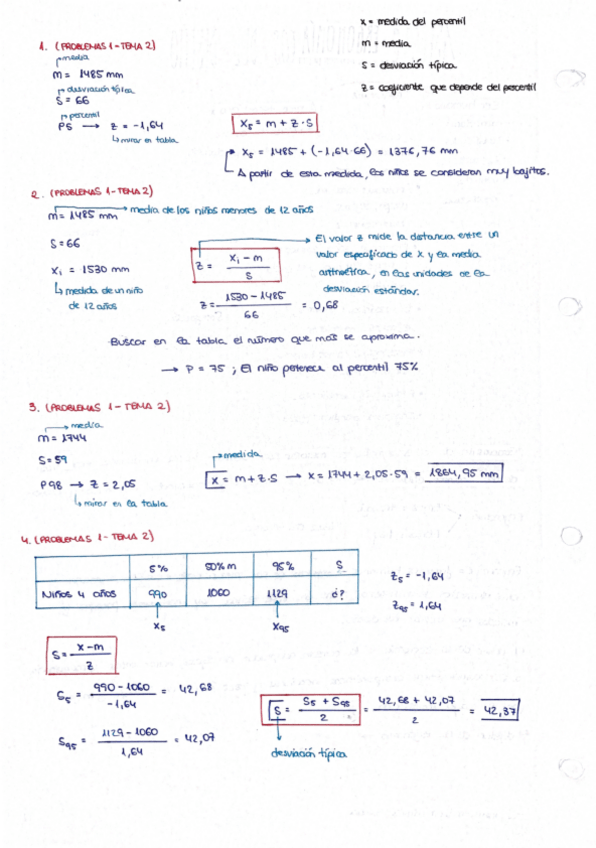 x = medida del percentil
m = media
S = desviación típica
z = coeficiente que depende del percentil
1. (PROBLEMAS 1 - TEMA 2)
media
m = 1485 mm
desviación típica
S = 66
percentil
P5 → z = -1,64
mirar en tabla
X5 = m + z · S
X5 = 1485 + (-1,64·66) = 1376,76 mm
A partir de esta medida, los niños se consideran muy bajitos.
2. (PROBLEMAS 1 - TEMA 2)
m = 1485 mm → media de los niños menores de 12 años
S = 66
Xi = 1530 mm
medida de un niño
de 12 años
z = Xi - m / S
El valor z mide la distancia entre un
valor especificado de X y la media
aritmética, en las unidades de la
desviación estándar.
z = 1530 - 1485 / 66 = 0,68
Buscar en la tabla el número que más se aproxima.
→ P = 75 ; El niño pertenece al percentil 75%
3. (PROBLEMAS 1 - TEMA 2)
media
m = 1744
S = 59
P98 → z = 2,05
mirar en la tabla
medida
x = m + z·S → x = 1744 + 2,05·59 = 1864,95 mm
4. (PROBLEMAS 1 - TEMA 2)
5% 50% m 95% S
Niños 4 años 990 1060 1129 ¿?
X5 X95
Z5 = -1,64
Z95 = 1,64
S = x - m / z
S5 = 990 - 1060 / -1,64 = 42,68
S95 = 1129 - 1060 / 1,64 = 42,07
S = S5 + S95 / 2 = 42,68 + 42,07 / 2 = 42,37
desviación típica